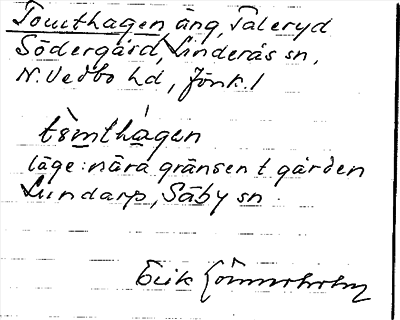 Tomthagen äng, Taleryd
Södergård, Linderås sn,
N. Vedbo hd, Jönk. l
tòmthágen
läge: nära gränsen t gården
Lundarp, Säby sn
Erik